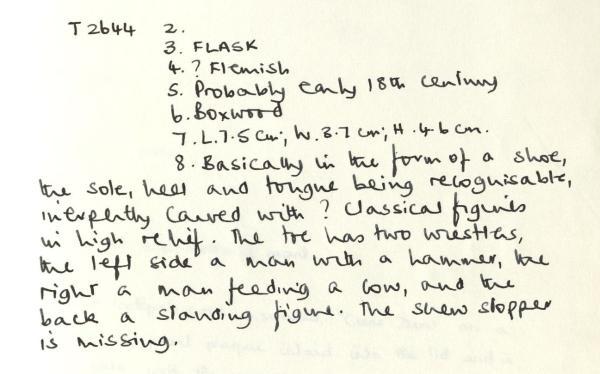 T 2644 2.
3. FLASK
4. ? Flemish
5. Probably early 18th century
6. Boxwood
7. L. 7.5 cm; W. 3.7 cm; H. 4.6 cm.
8. Basically in the form of a shoe,
the sole, heel and tongue being recognisable,
inexpertly carved with ? classical figures
in high relief. The toe has two wrestlers,
the left side a man with a hammer, the
right a man feeding a cow, and the
back a standing figure. The screw stopper
is missing.